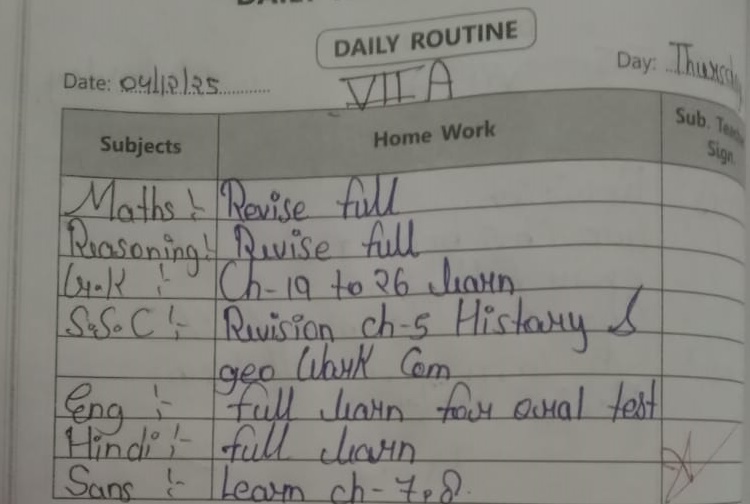 DAILY ROUTINE
Date: 04/12/25 Day: Thursday
VII A
Subjects Home Work Sub. Teacher Sign.
Maths :- Revise full
Reasoning :- Revise full
G.K :- Ch-19 to 26 learn
S.S.C :- Revision ch-5 History &
geo Work Com
Eng :- full learn for oral test
Hindi :- full learn
Sans :- Learn ch-7,8.